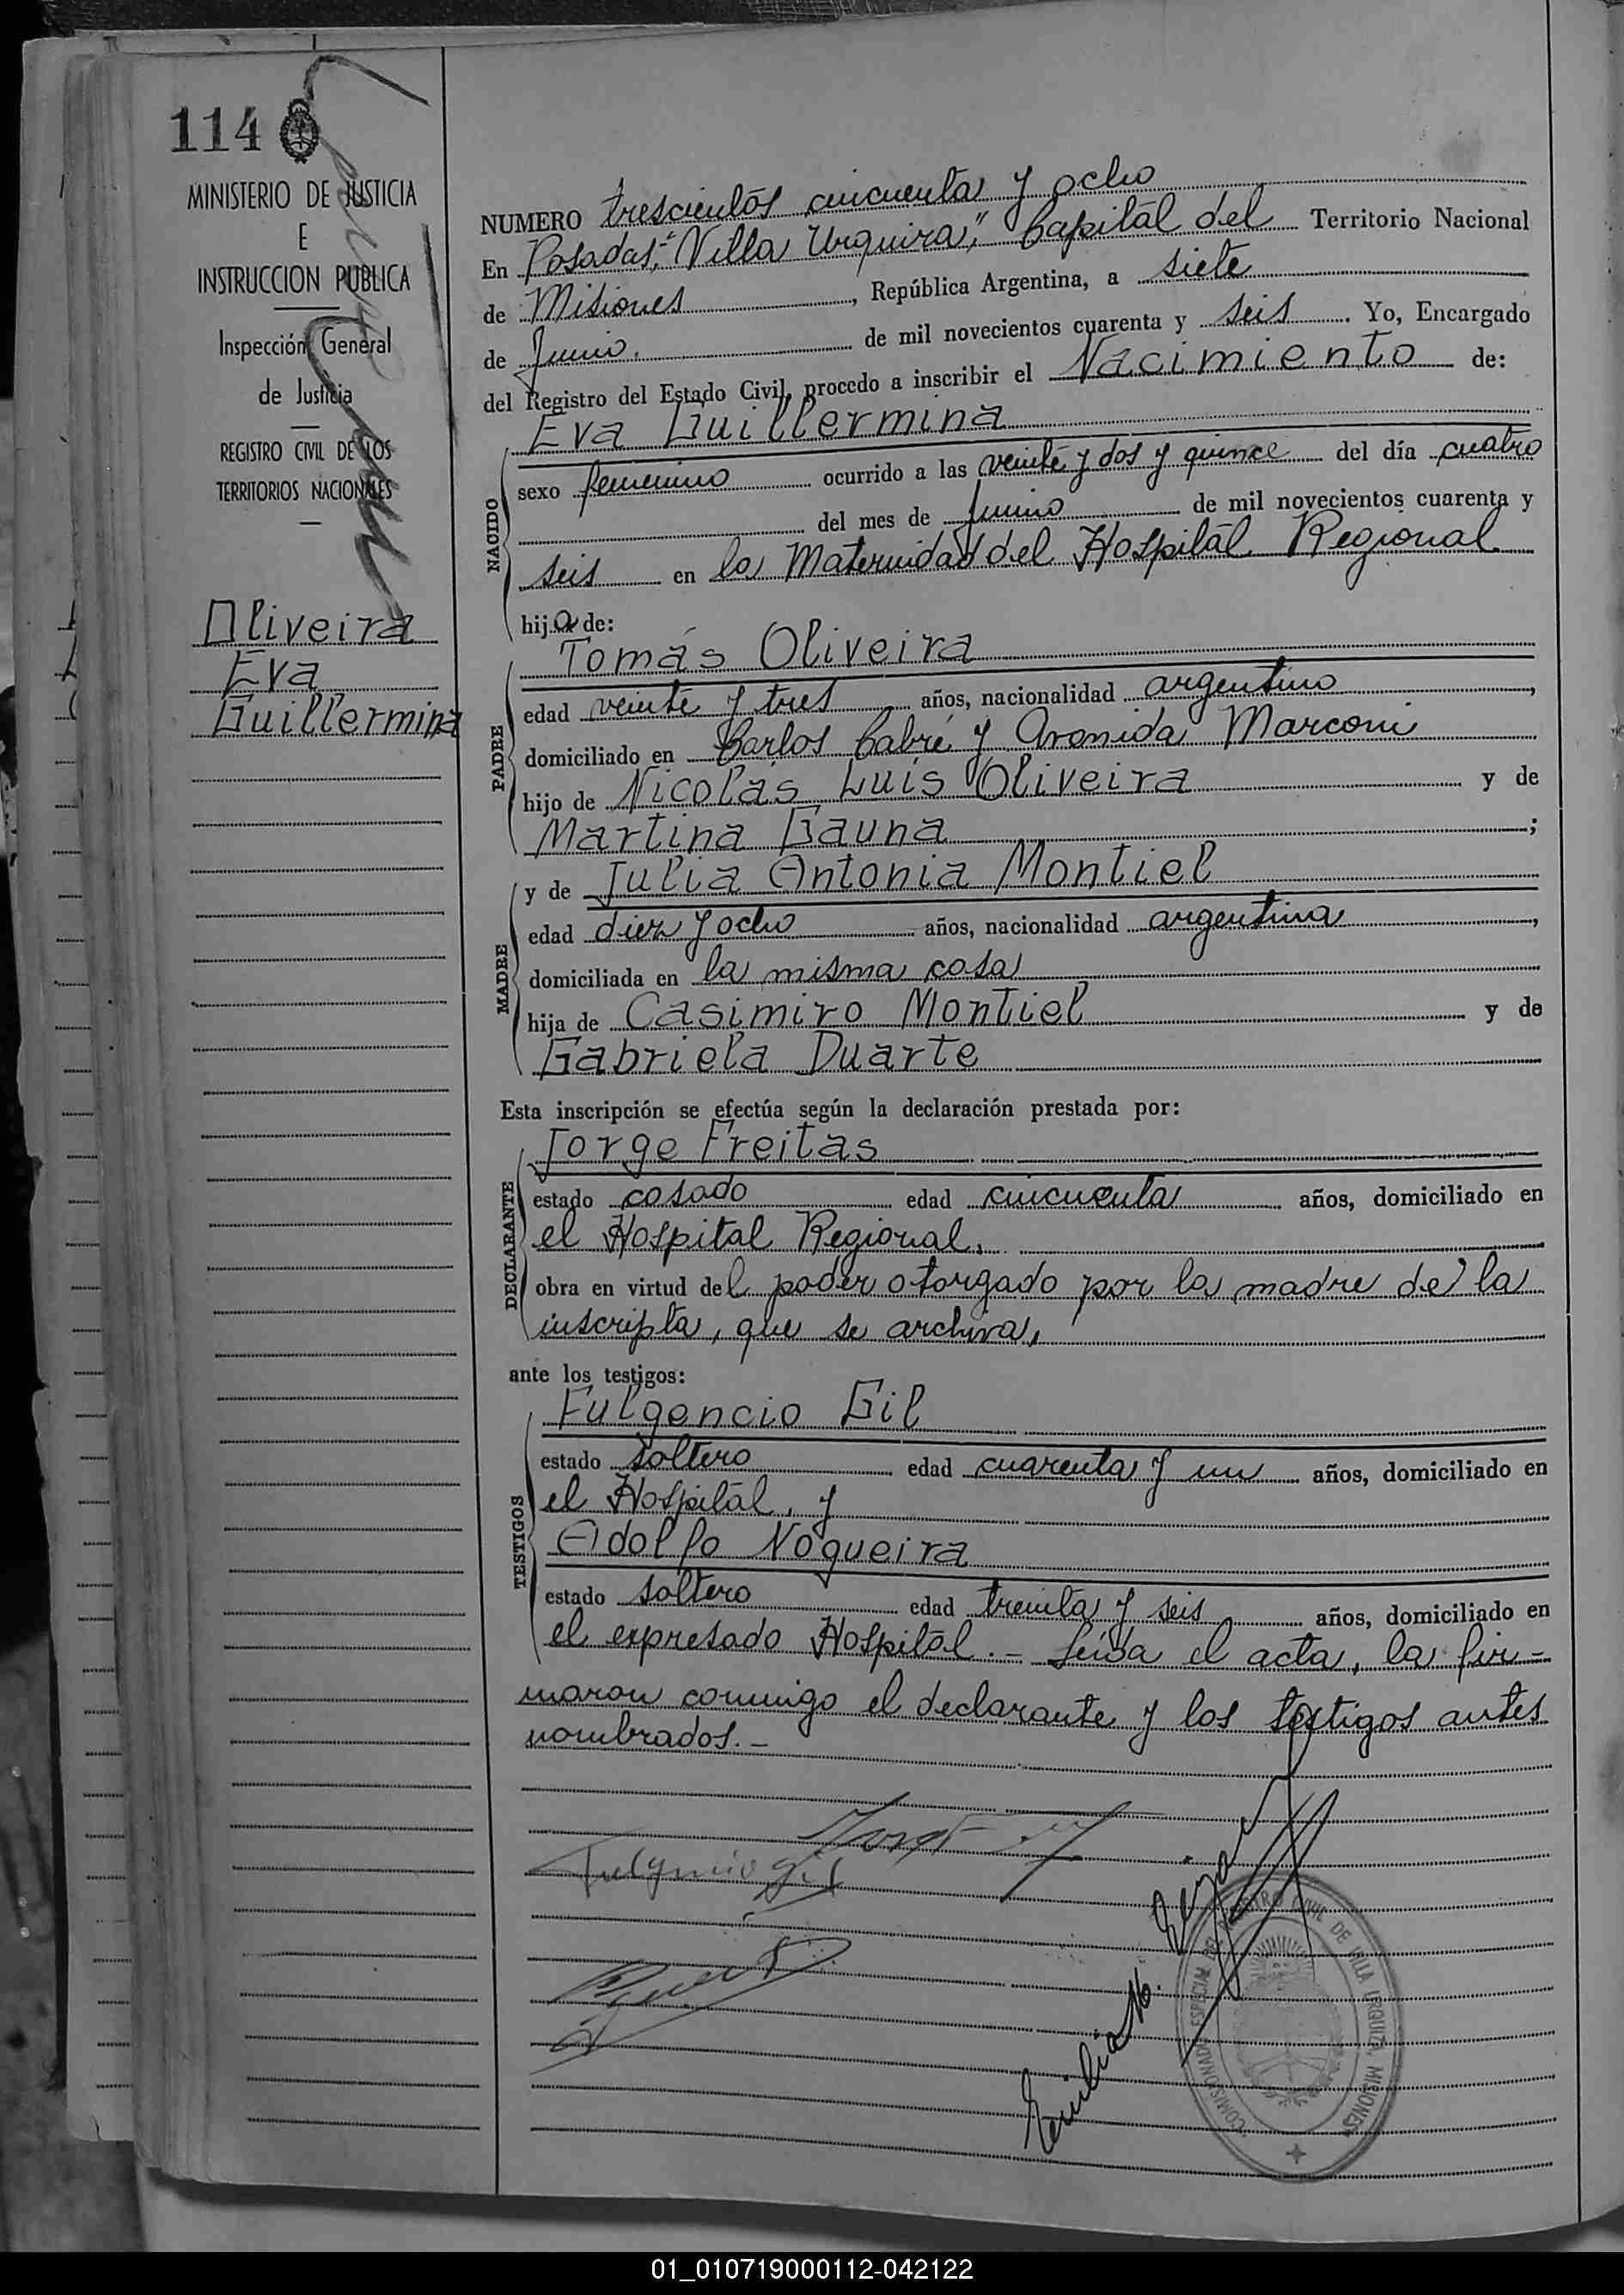 114
MINISTERIO DE JUSTICIA
E
INSTRUCCION PUBLICA
Inspección General
de Justicia
REGISTRO CIVIL DE LOS
TERRITORIOS NACIONALES
Oliveira
Eva
Guillermina
NUMERO trescientos cincuenta y ocho
En Posadas, "Villa Urquiza", Capital del Territorio Nacional
de Misiones, República Argentina, a siete
de Junio. de mil novecientos cuarenta y seis. Yo, Encargado
del Registro del Estado Civil, procedo a inscribir el Nacimiento de:
Eva Guillermina
NACIDO
sexo femenino ocurrido a las veinte y dos y quince del día cuatro
del mes de Junio de mil novecientos cuarenta y
seis en la Maternidad del Hospital Regional
hija de:
Tomás Oliveira
PADRE
edad veinte y tres años, nacionalidad argentino,
domiciliado en Carlos Cabré y Marconi
hijo de Nicolás Luis Oliveira y de
Martina Gauna;
y de Julia Antonia Montiel
MADRE
edad diez y ocho años, nacionalidad argentina,
domiciliada en la misma casa
hija de Casimiro Montiel y de
Gabriela Duarte
Esta inscripción se efectúa según la declaración prestada por:
Jorge Freitas
DECLARANTE
estado casado edad cincuenta años, domiciliado en
el Hospital Regional,
obra en virtud del poder otorgado por la madre de la
inscripta, que se archiva,
ante los testigos:
Fulgencio Gil
TESTIGOS
estado soltero edad cuarenta y un años, domiciliado en
el Hospital, y
Adolfo Nogueira
estado soltero edad treinta y seis años, domiciliado en
el expresado Hospital.- Leída el acta, la fir-
maron conmigo el declarante y los testigos antes
nombrados.-
Fulgencio Gil
Emilia M.
COMISIONADO ESPECIAL DEL REGISTRO CIVIL DE VILLA URQUIZA MISIONES
01_010719000112-042122